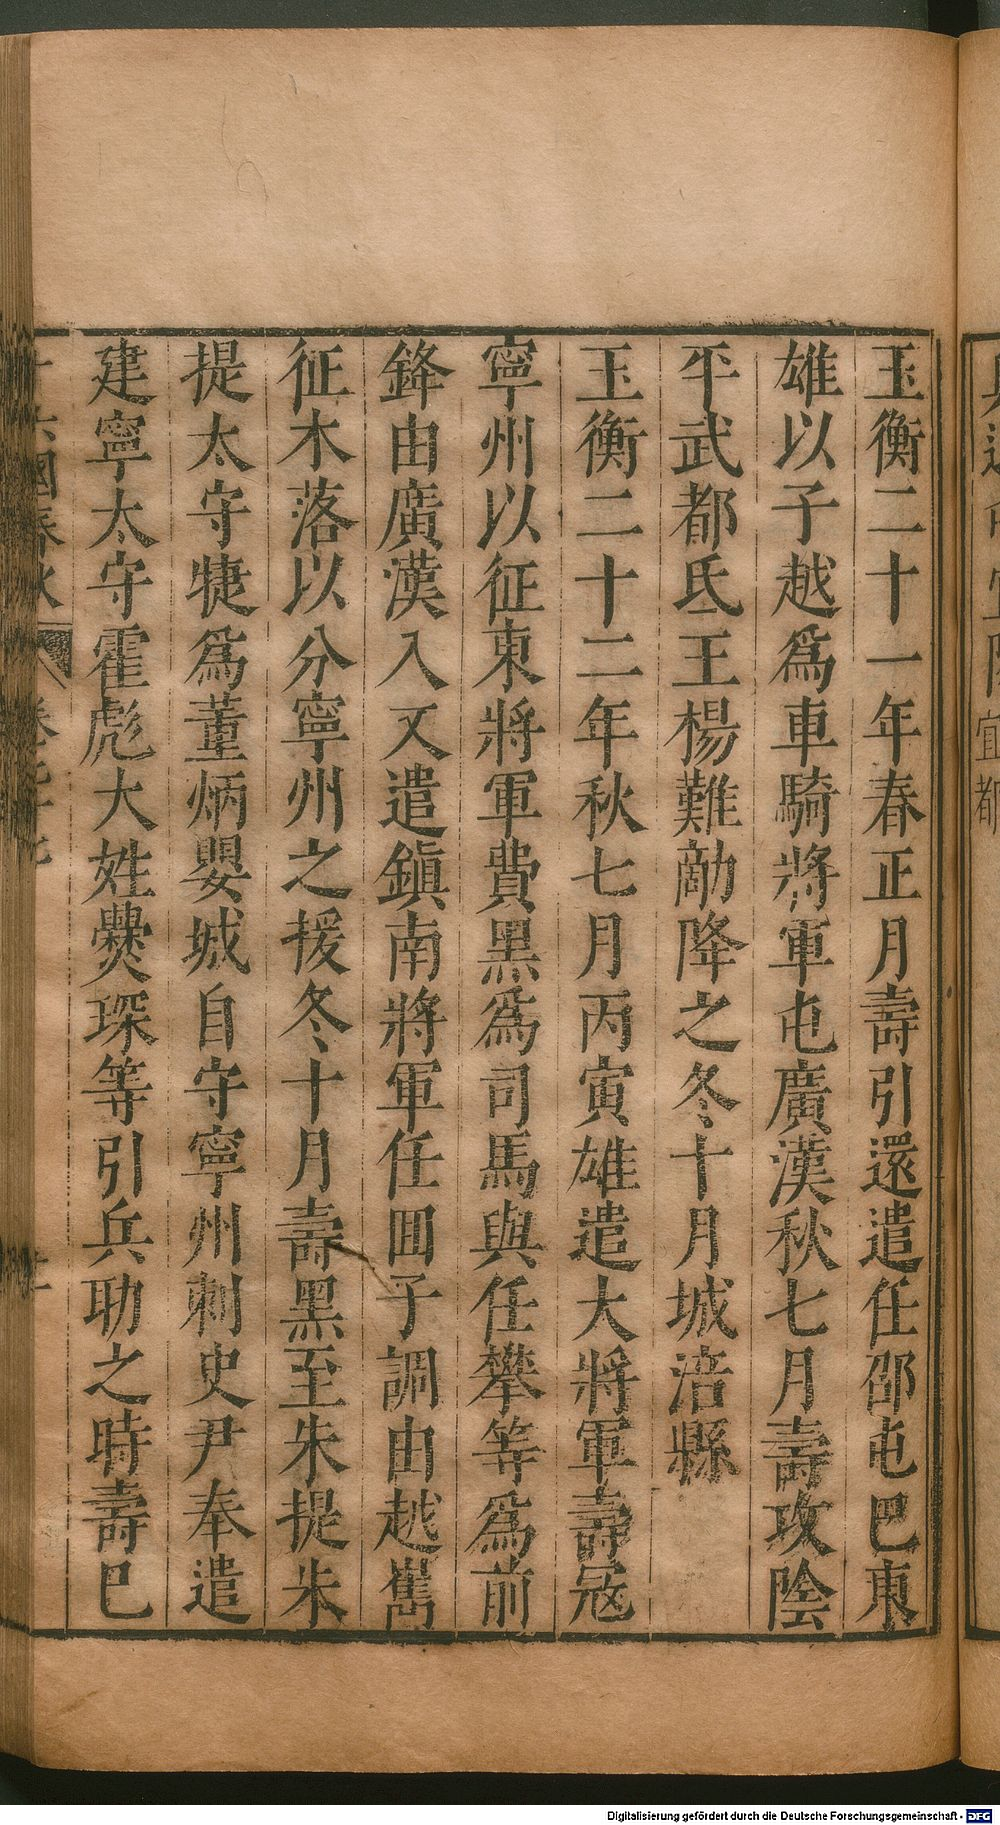 玉衡二十一年春正月壽引還遣任邵屯巴東
雄以子越爲車騎將軍屯廣漢秋七月壽攻陰
平武都氐王楊難敵降之冬十月城涪縣
玉衡二十二年秋七月丙寅雄遣大將軍壽冦
寧州以征東將軍費黑爲司馬與任攀等爲前
鋒由廣漢入又遣鎭南將軍任囬子調由越嶲
征木落以分寧州之援冬十月壽黑至朱提朱
提太守㨗爲董炳嬰城自守寧州刺史尹奉遣
建寧太守霍彪大姓㸑琛等引兵助之時壽巳
十六國春秋
宜都
Digitalisierung gefördert durch die Deutsche Forschungsgemeinschaft - DFG